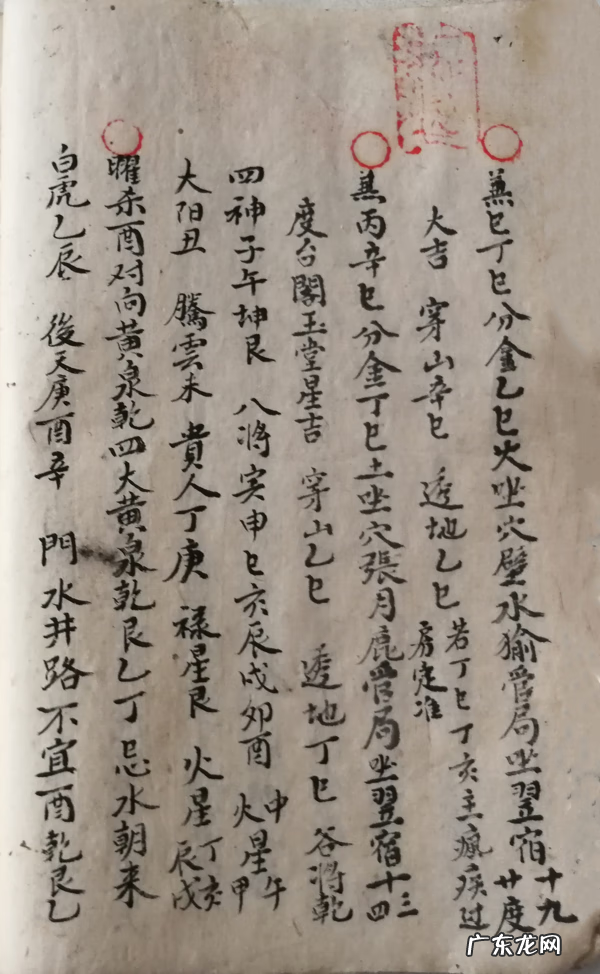 兼巳丁巳分金乙巳火坐穴壁水㺄管局坐翌宿十九廿度
大吉 穿山辛巳 透地乙巳 若丁巳丁亥主瘋疾过房定准
兼丙辛巳分金丁巳土坐穴張月鹿管局坐翌宿十三十四
度台閣玉堂星吉 穿山乙巳 透地丁巳 谷将乾
四神子午坤艮 八将寅申巳亥辰戌卯酉 中火星午甲
大阳丑 騰雲未 貴人丁庚 禄星艮 火星丁亥辰戌
曜杀酉对向黄泉乾四大黄泉乾艮乙丁忌水朝来
白虎乙辰 後天庚酉辛 門水井路不宜酉乾艮乙
广东龙网